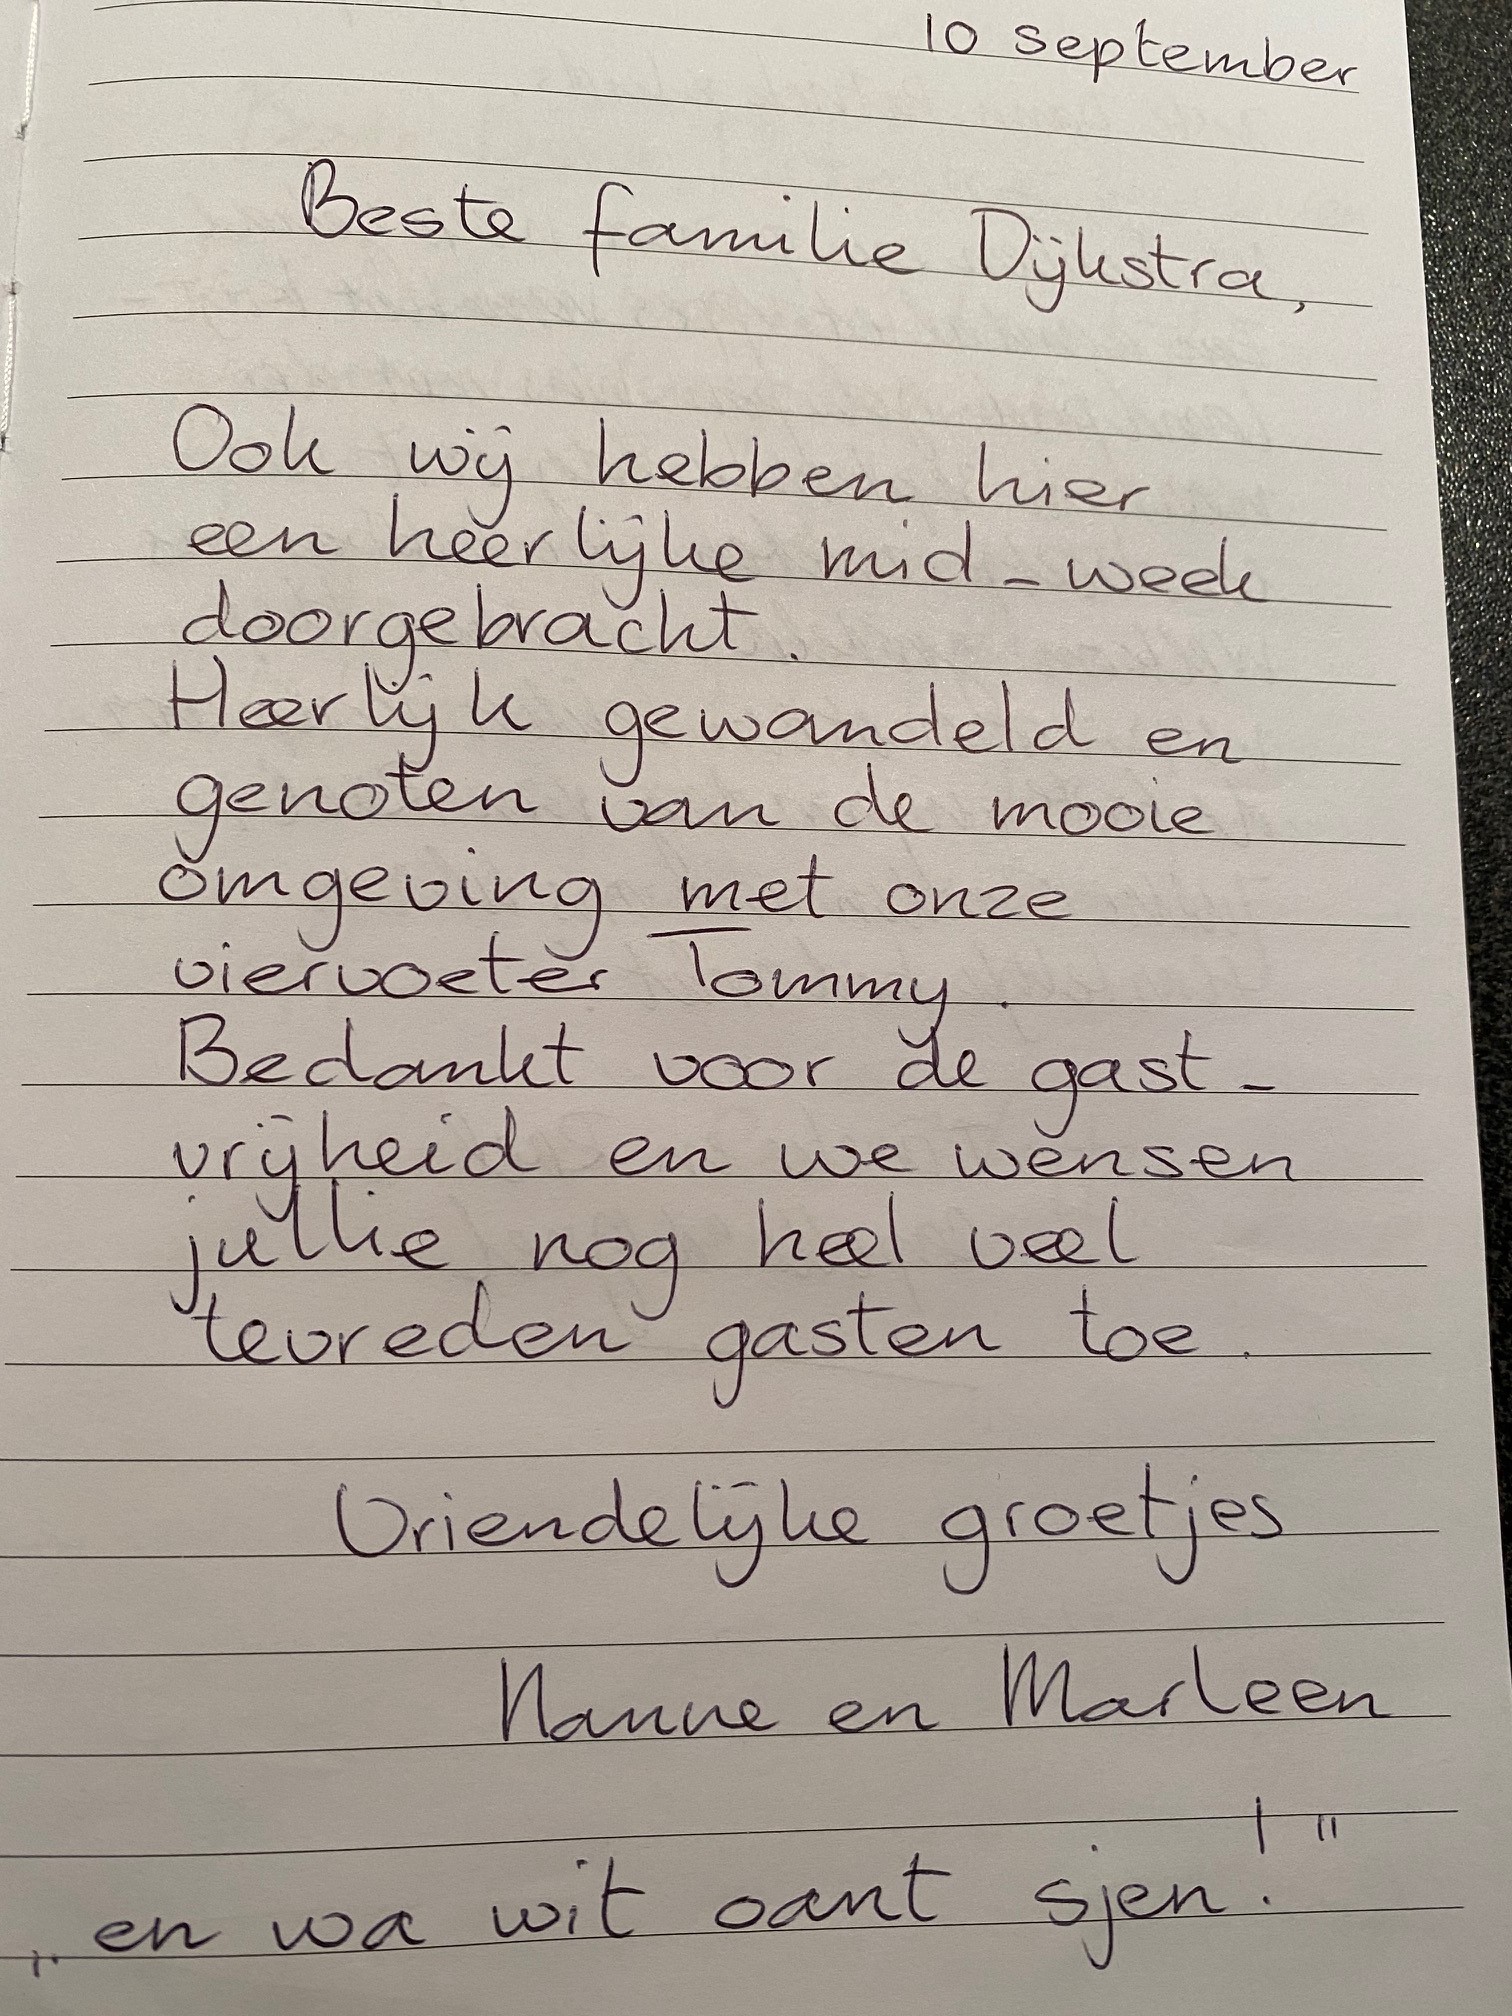 10 september
Beste familie Dijkstra,
Ook wij hebben hier
een heerlijke mid-week
doorgebracht.
Heerlijk gewandeld en
genoten van de mooie
omgeving met onze
viervoeter Tommy.
Bedankt voor de gast-
vrijheid en we wensen
jullie nog heel veel
tevreden gasten toe.
Vriendelijke groetjes
Hanne en Marleen
„en wa wit oant sjen!"